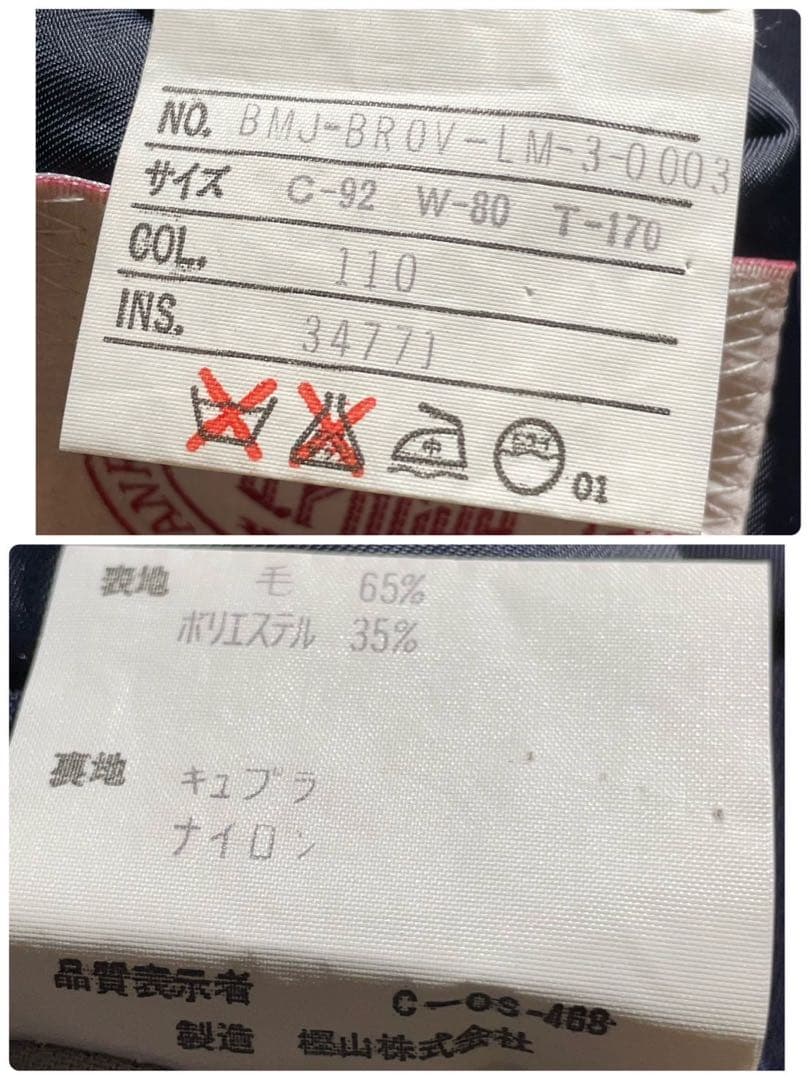 NO. BMJ-BROV-LM-3-0003
サイズ C-92 W-80 T-170
COL. 110
INS. 34771
中 ドライ 01
表地 毛 65%
ポリエステル 35%
裏地 キュプラ
ナイロン
品質表示者 C-OS-468
製造 樫山株式会社